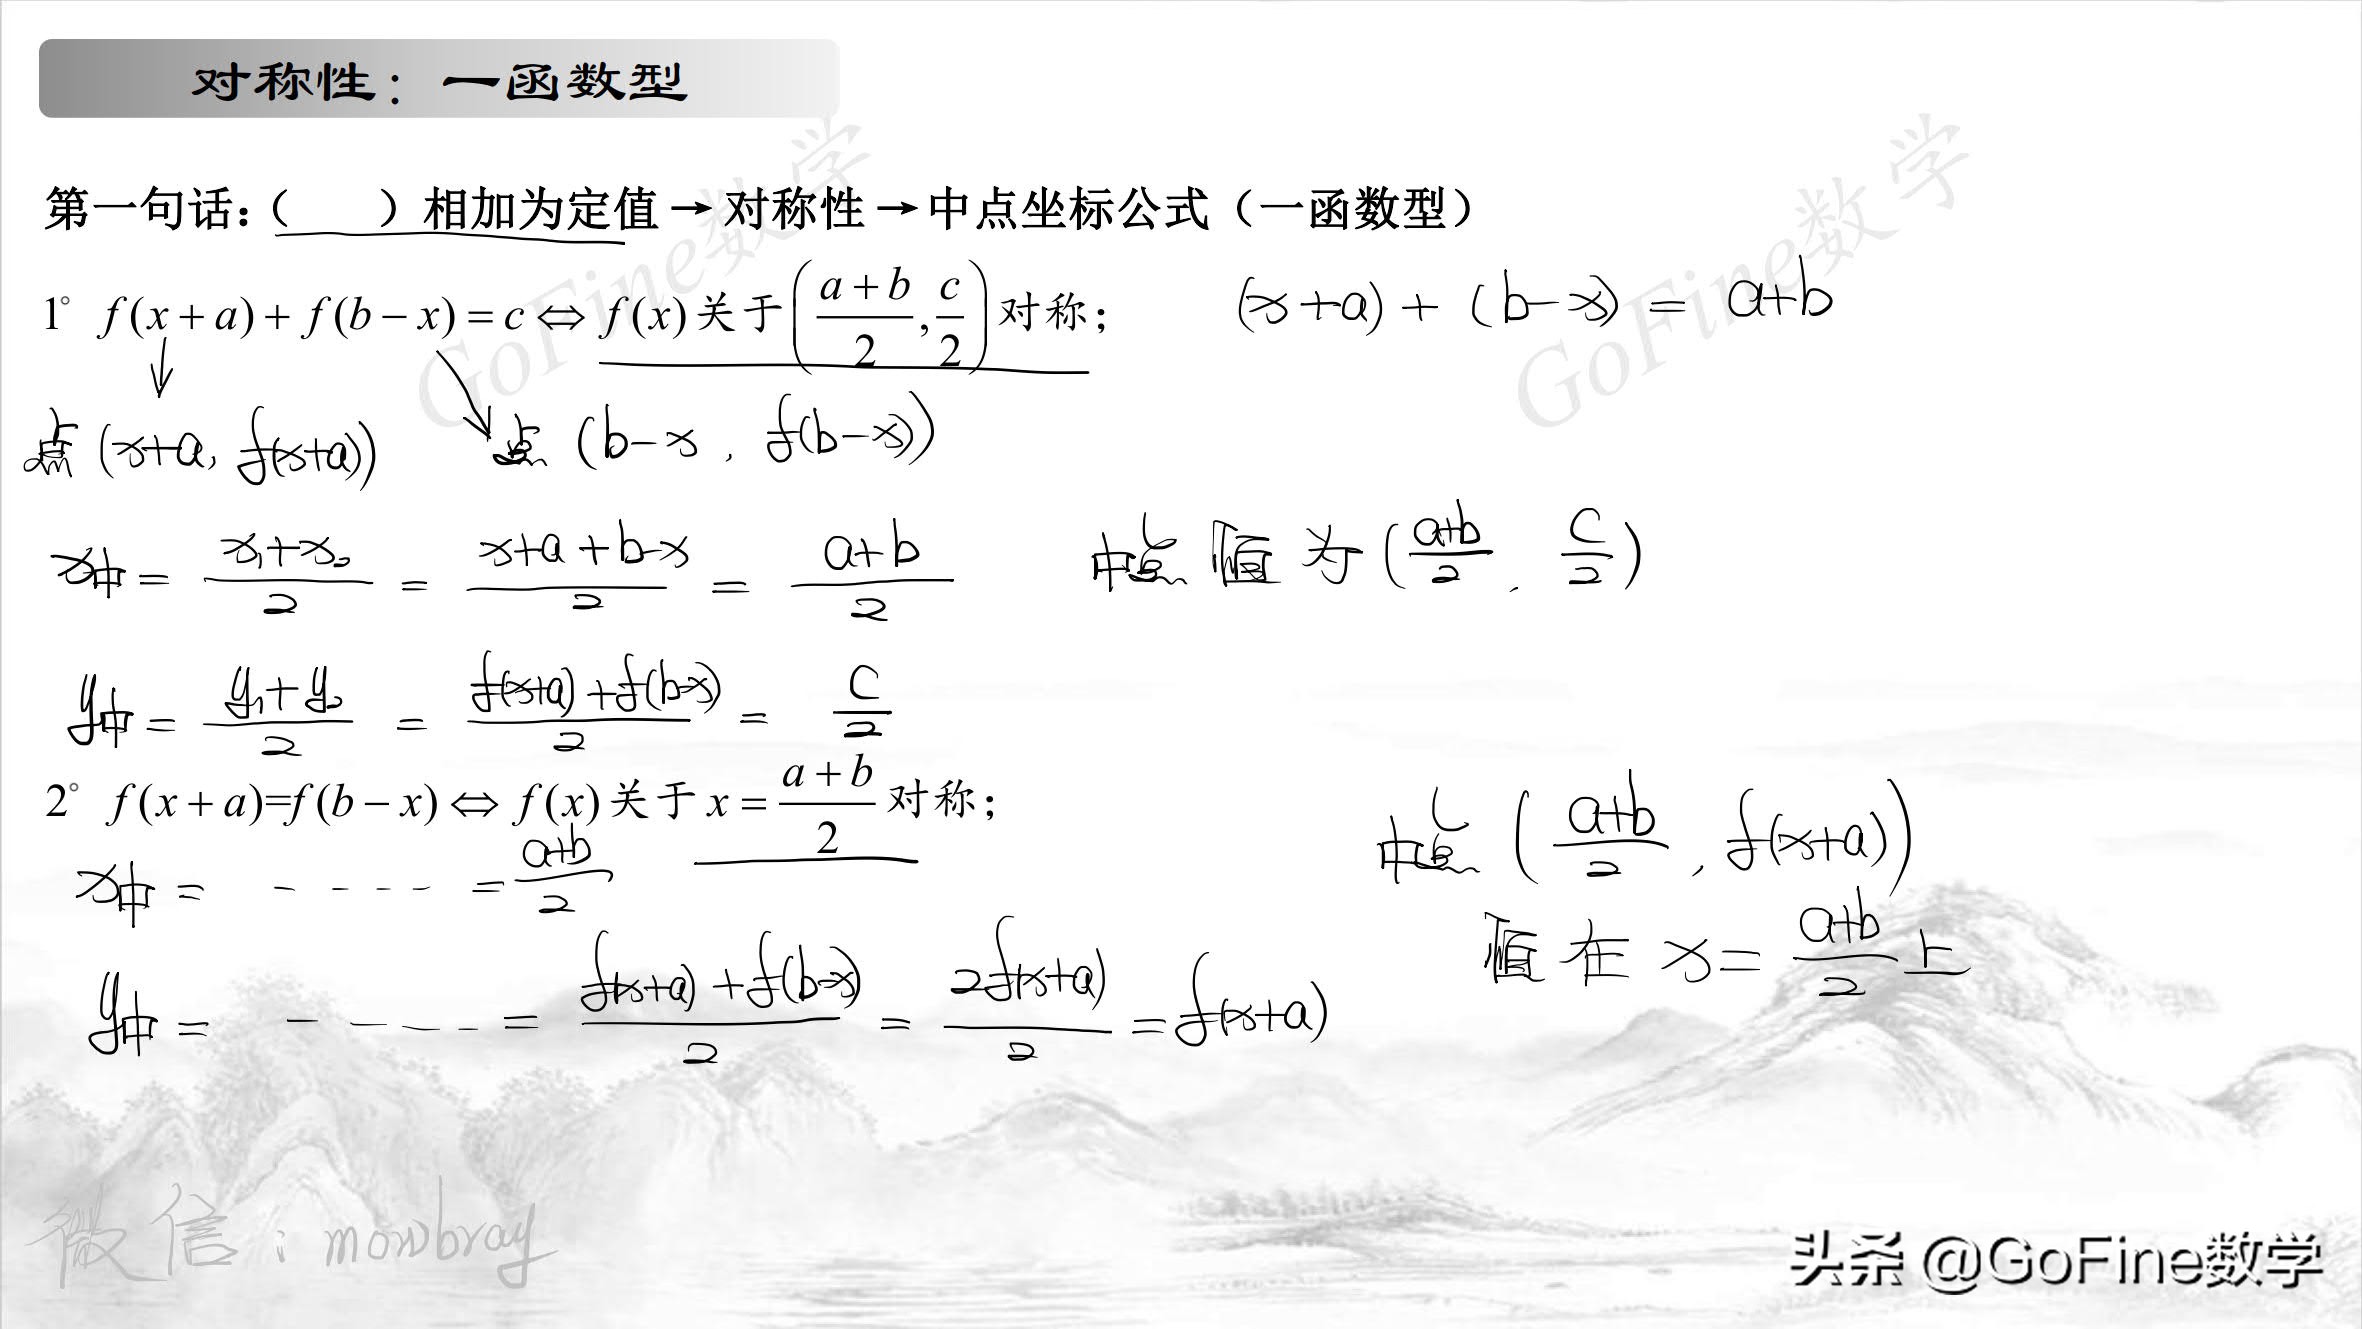 对称性：一函数型
第一句话：（　　）相加为定值→对称性→中点坐标公式（一函数型）
1° f(x+a)+f(b−x)=c⇔f(x)关于((a+b)/2, c/2)对称；
(x+a)+(b−x)=a+b
点(x+a, f(x+a))
点(b−x, f(b−x))
x中=(x₁+x₂)/2=(x+a+b−x)/2=(a+b)/2
中点恒为((a+b)/2, c/2)
y中=(y₁+y₂)/2=(f(x+a)+f(b−x))/2=c/2
2° f(x+a)=f(b−x)⇔f(x)关于x=(a+b)/2对称；
x中= - - - - =(a+b)/2
中点((a+b)/2, f(x+a))
恒在x=(a+b)/2上
y中= - - - - - =(f(x+a)+f(b−x))/2=2f(x+a)/2=f(x+a)
GoFine数学
GoFine数学
微信：mowbray
头条 @GoFine数学